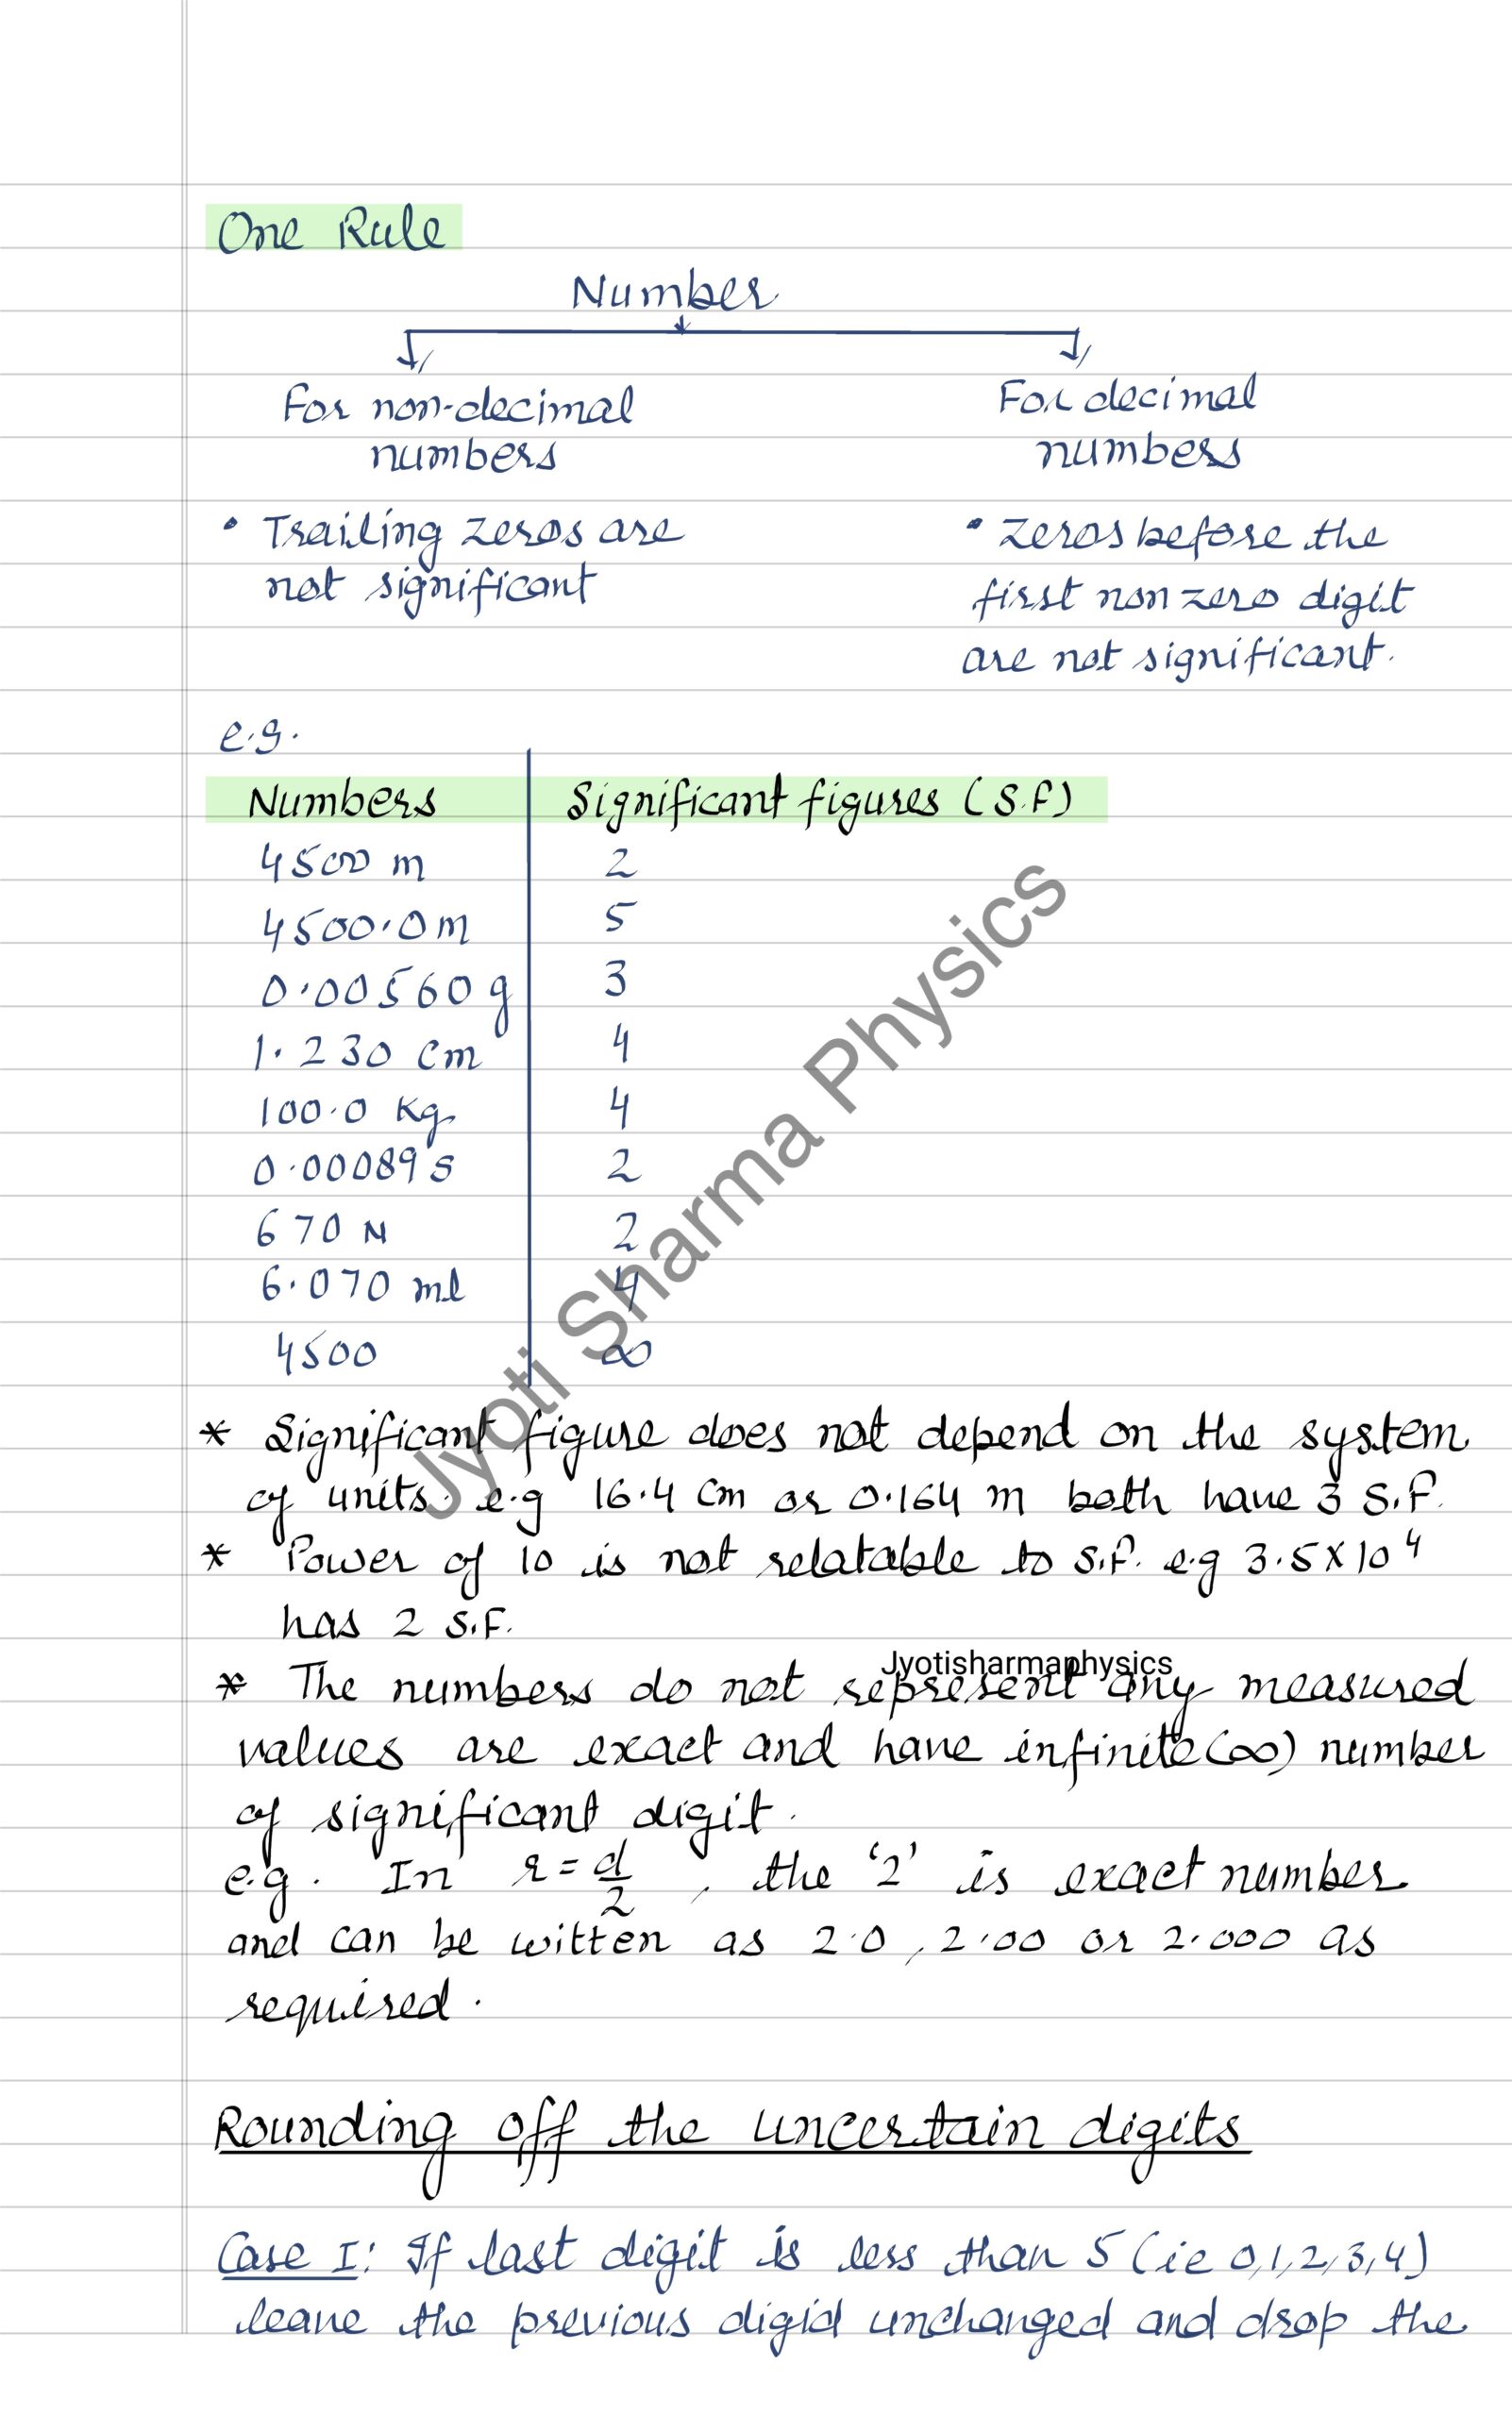 One Rule
Number
For non-decimal
numbers
For decimal
numbers
• Trailing zeros are
not significant
• Zeros before the
first non zero digit
are not significant.
e.g.
Numbers Significant figures (S.F)
4500 m 2
4500.0 m 5
0.00560 g 3
1.230 cm 4
100.0 Kg 4
0.00089 s 2
670 N 2
6.070 ml 4
4500 ∞
Jyoti Sharma Physics
* Significant figure does not depend on the system
of units. e.g 16.4 cm or 0.164 m both have 3 S.F.
* Power of 10 is not relatable to S.F. e.g 3.5 X 10⁴
has 2 S.F.
Jyotisharmaphysics
* The numbers do not represent any measured
values are exact and have infinite (∞) number
of significant digit.
e.g. In r = d/2, the '2' is exact number
and can be witten as 2.0, 2.00 or 2.000 as
required.
Rounding off the uncertain digits
Case I: If last digit is less than 5 (ie 0,1,2,3,4)
leave the previous digid unchanged and drop the